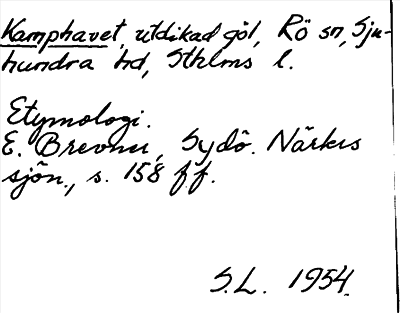 Kamphavet, utdikad göl, Rö sn, Sju-
hundra hd, Sthlms l.
Etymologi.
E. Brevner, Sydö. Närkes
sjön., s. 158 f.f.
S.L. 1954.